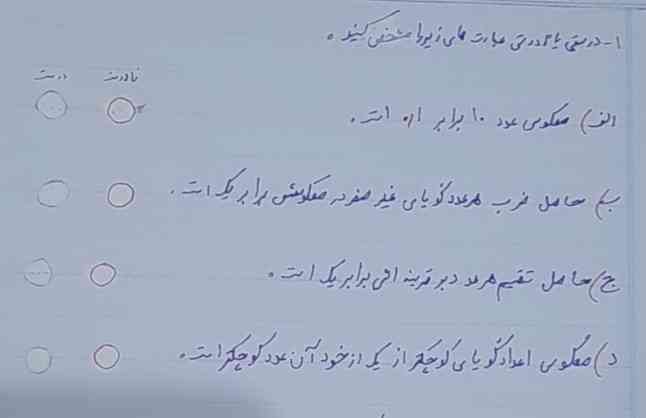 ۱- درستی یا نادرستی عبارت های زیر را مشخص کنید .
نادرست درست
الف) معکوس عدد ۱۰ برابر ۰/۱ است .
ب) حاصل ضرب هر عدد گویای غیر صفر در معکوسش برابر یک است .
ج) حاصل تقسیم هر عدد بر قرینه اش برابر یک است .
د) معکوس اعداد گویای کوچکتر از یک از خود آن عدد کوچکتر است .